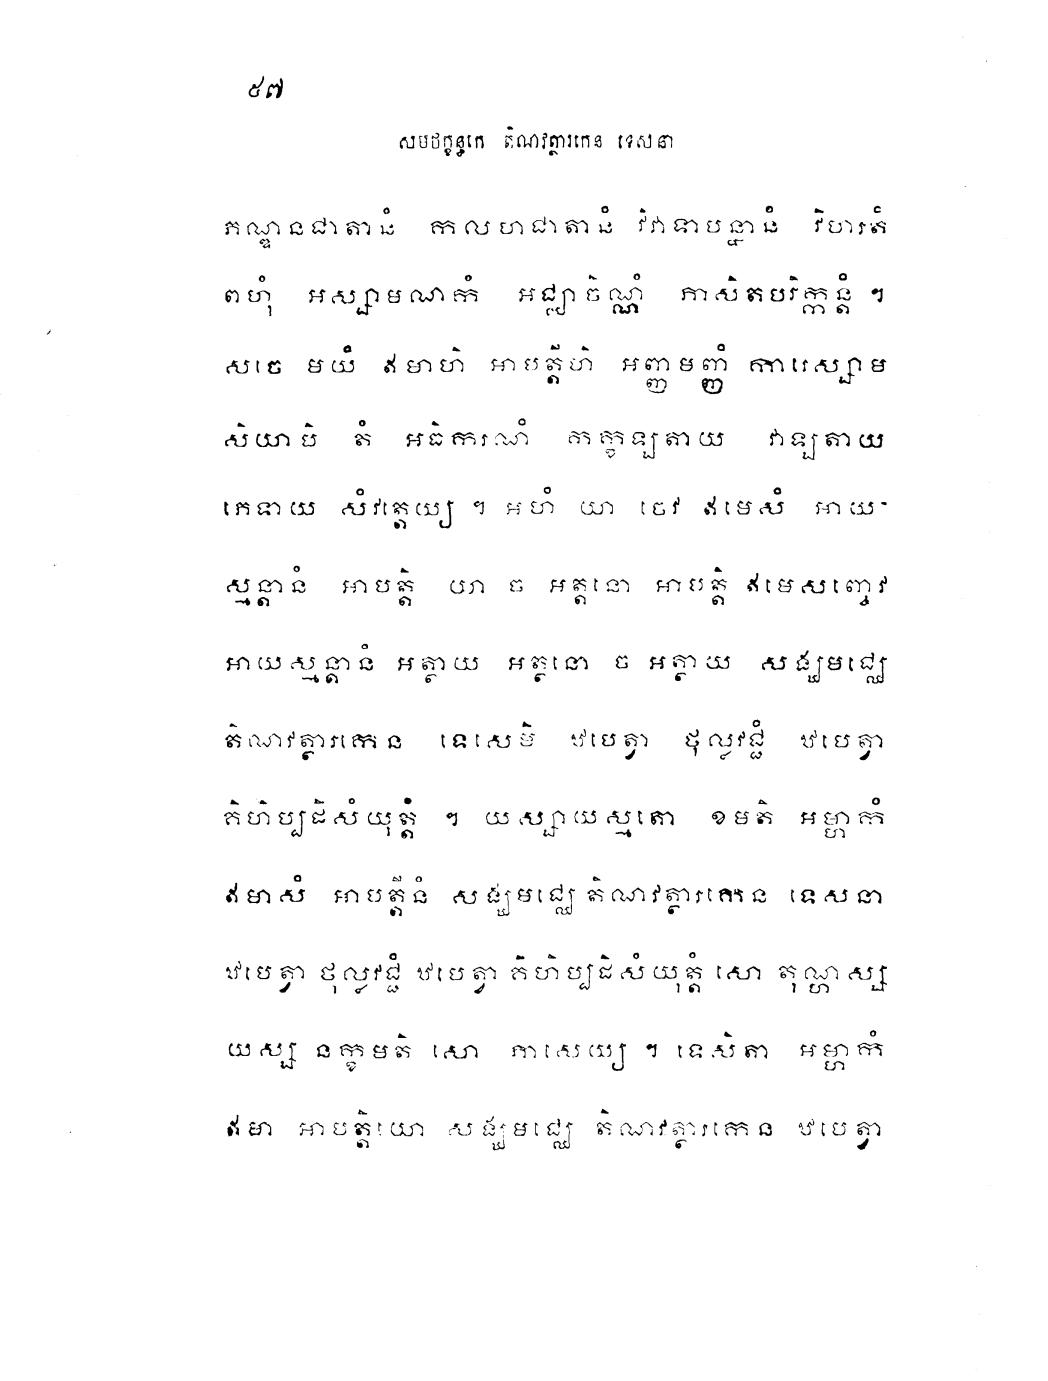 ៥៧
សមថក្ខន្ធកេ តិណវត្ថារកេន ទេសនា
ភណ្ឌនជាតានំ កលហជាតានំ វិវាទាបន្នានំ វិហរតំ
ពហុំ អស្សាមណកំ អជ្ឈាចិណ្ណំ ភាសិតបរិក្កន្តំ ។
សចេ មយំ ឥមាហិ អាបត្តីហិ អញ្ញមញ្ញំ ការេស្សាម
សិយាបិ តំ អធិករណំ កក្ខឡត្តាយ វាឡត្តាយ
ភេទាយ សំវត្តេយ្យ ។ អហំ យា ចេវ ឥមេសំ អាយ-
ស្មន្តានំ អាបត្តិ យា ច អត្តនោ អាបត្តិ ឥមេសញ្ចេវ
អាយស្មន្តានំ អត្ថាយ អត្តនោ ច អត្ថាយ សង្ឃមជ្ឈេ
តិណវត្ថារកេន ទេសេមិ ឋបេត្វា ថុល្លវជ្ជំ ឋបេត្វា
គិហិប្បដិសំយុត្តំ ។ យស្សាយស្មតោ ខមតិ អម្ហាកំ
ឥមាសំ អាបត្តីនំ សង្ឃមជ្ឈេ តិណវត្ថារកេន ទេសនា
ឋបេត្វា ថុល្លវជ្ជំ ឋបេត្វា គិហិប្បដិសំយុត្តំ សោ តុណ្ហស្ស
យស្ស នក្ខមតិ សោ ភាសេយ្យ ។ ទេសិតា អម្ហាកំ
ឥមា អាបត្តិយោ សង្ឃមជ្ឈេ តិណវត្ថារកេន ឋបេត្វា